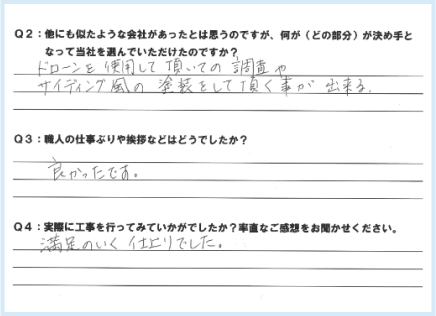 Q2：他にも似たような会社があったとは思うのですが、何が（どの部分）が決め手と
なって当社を選んでいただけたのですか？
ドローンを使用して頂いての調査や
サイディング風の塗装をして頂く事が出来る。
Q3：職人の仕事ぶりや挨拶などはどうでしたか？
良かったです。
Q4：実際に工事を行ってみていかがでしたか？率直なご感想をお聞かせください。
満足のいく仕上りでした。